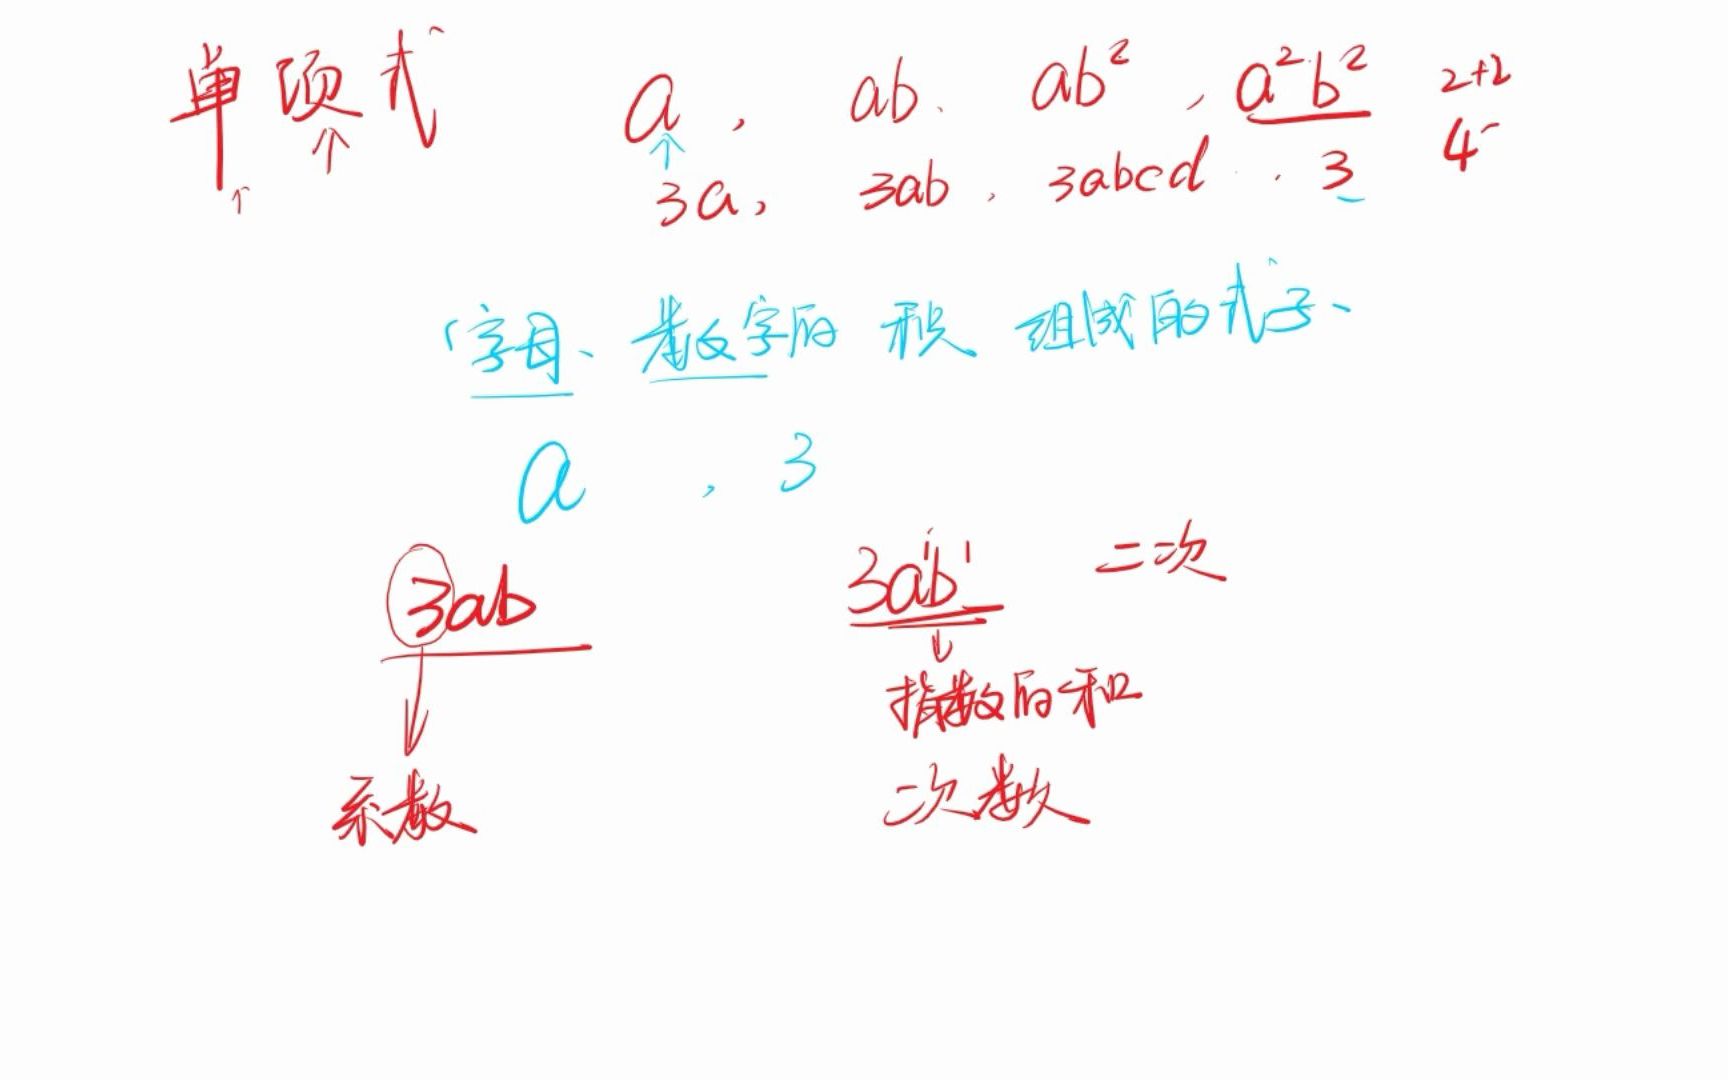 单项式 a, ab、 ab², a²b² 2+2
3a, 3ab、 3abcd 、3 4
字母、数字的积组成的式子、
a , 3
3ab 3a¹b¹ 二次
指数的和
系数 次数